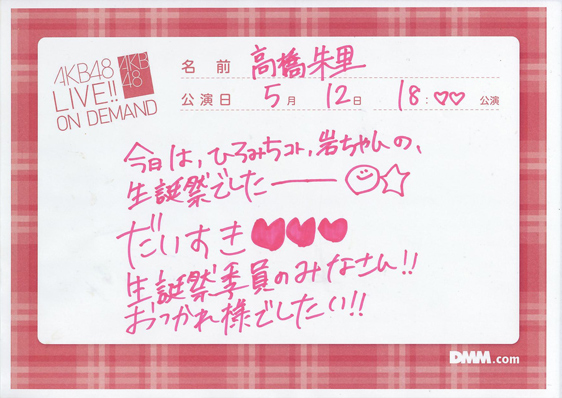 AKB48
LIVE!!
ON DEMAND
AKB
48
名前 高橋朱里
公演日 5月 12日 18:♡♡ 公演
今日は、ひろみちコト、岩ちゃんの、
生誕祭でしたー☺☆
だいすき♥♥♥
生誕祭委員のみなさん!!
おつかれ様でしたい!!
DMM.com